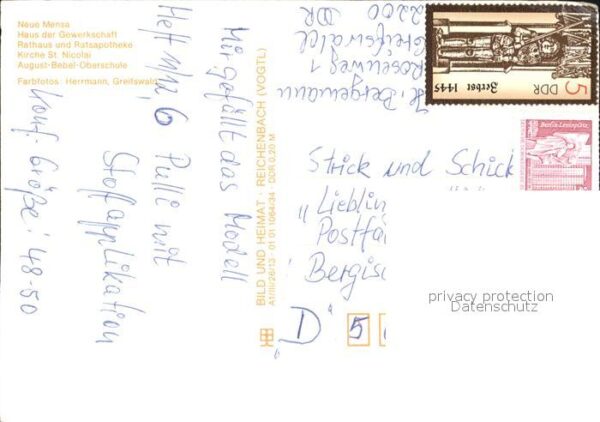 Neue Mensa
Haus der Gewerkschaft
Rathaus und Ratsapotheke
Kirche St. Nicolai
August-Bebel-Oberschule
Farbfotos: Herrmann, Greifswald
Mir gefällt das Modell
Heft 11/12, 6 Pulli mit
Stoffapplikation
Konf. Größe: 48-50
BILD UND HEIMAT · REICHENBACH (VOGTL)
A1/III/26/13 · 01 01 1064/34 · DDR 0,20 M
H. Bergemann
Rosenweg 1
Greifswald
2200 DDR
Zerbst 1445
DDR
5
Berlin-Leninplatz
Strick und Schick
"Lieblin
Postfä
Bergisc
"D" 5
privacy protection
Datenschutz